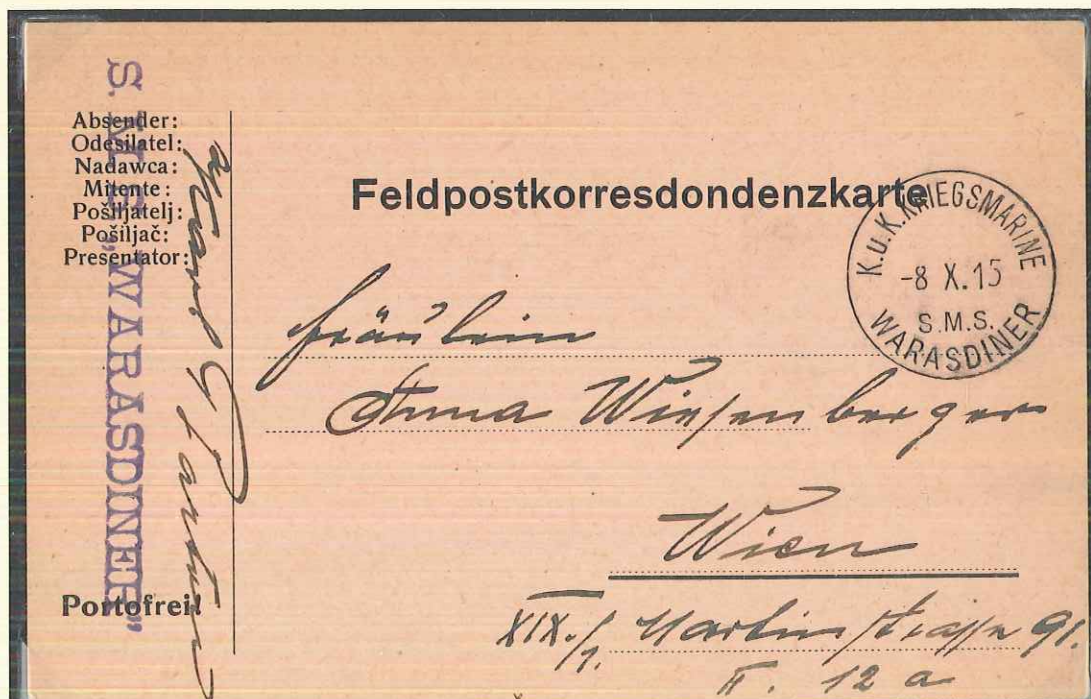 S. M. S. „WARASDINER”
Absender:
Odesilatel:
Nadawca:
Mitente:
Pošiljatelj:
Pošiljač:
Presentator:
Portofrei!
Feldpostkorresdondenzkarte
K.u.K. KRIEGSMARINE
-8 X.15
S.M.S.
WARASDINER
Fräulein
Anna Wiesenberger
Wien
XIX./1. Martinstrasse 91.
II. 12 a